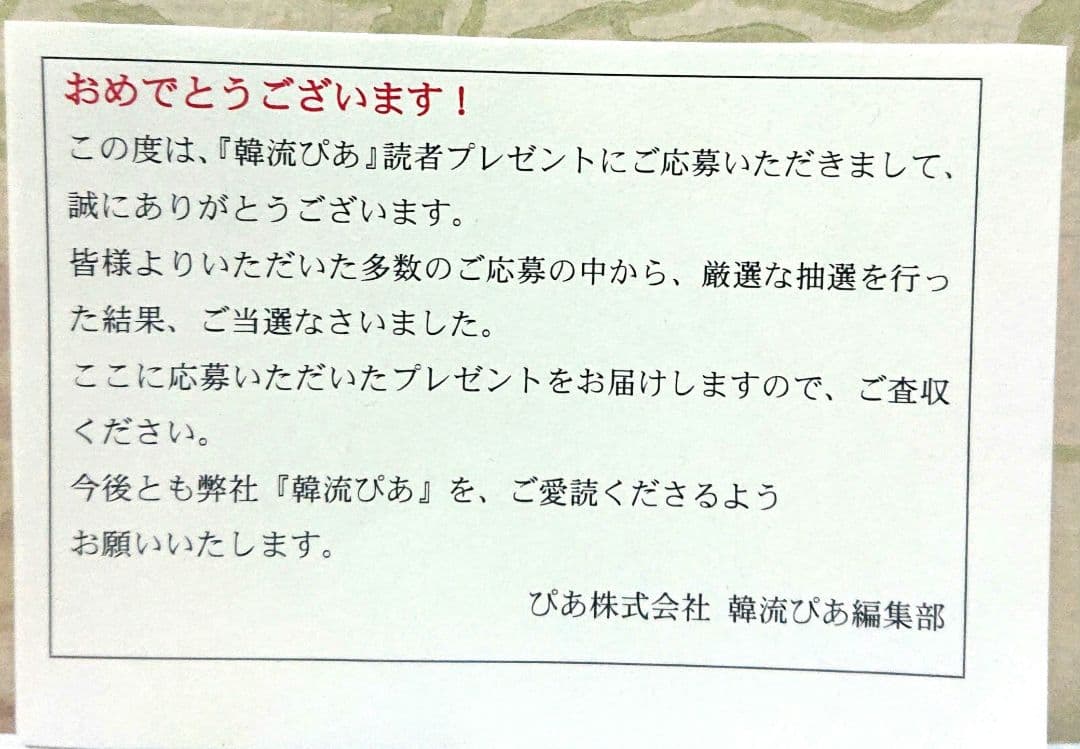 おめでとうございます！
この度は、『韓流ぴあ』読者プレゼントにご応募いただきまして、
誠にありがとうございます。
皆様よりいただいた多数のご応募の中から、厳選な抽選を行っ
た結果、ご当選なさいました。
ここに応募いただいたプレゼントをお届けしますので、ご査収
ください。
今後とも弊社『韓流ぴあ』を、ご愛読くださるよう
お願いいたします。
ぴあ株式会社 韓流ぴあ編集部